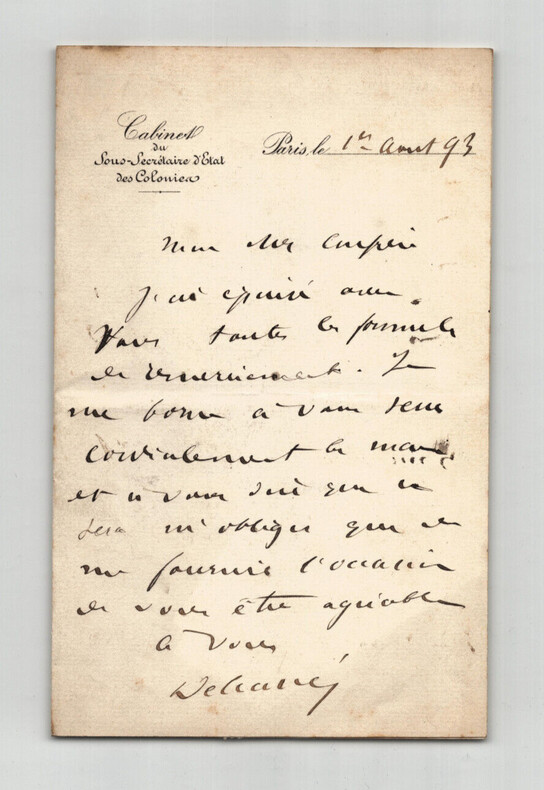 Cabinet
du
Sous-Secrétaire d'Etat
des Colonies
Paris, le 1er Aout 93
Mon cher confrère
J'ai épuisé avec
vous toutes les formules
de remerciement. Je
me borne à vous serrer
cordialement la main
et à vous dire que ce
sera m'obliger que de
me fournir l'occasion
de vous être agréable
à vous
Delcassé